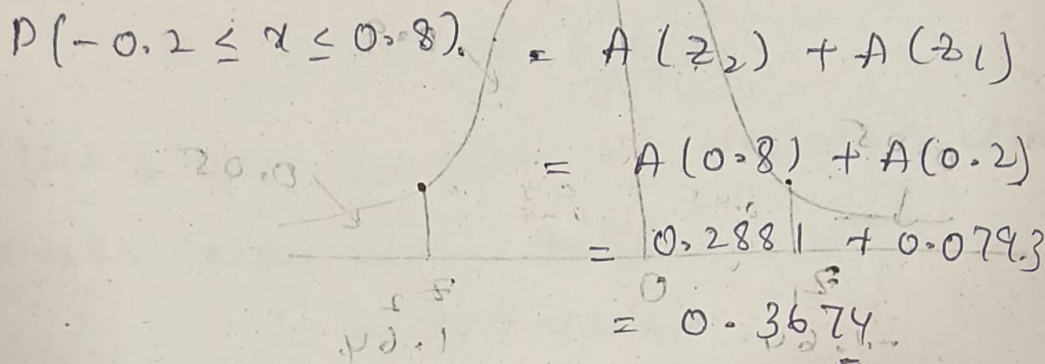 P(-0.2 ≤ x ≤ 0.8). = A(z₂) + A(z₁)
= A(0.8) + A(0.2)
= 0.2881 + 0.0793
= 0.3674